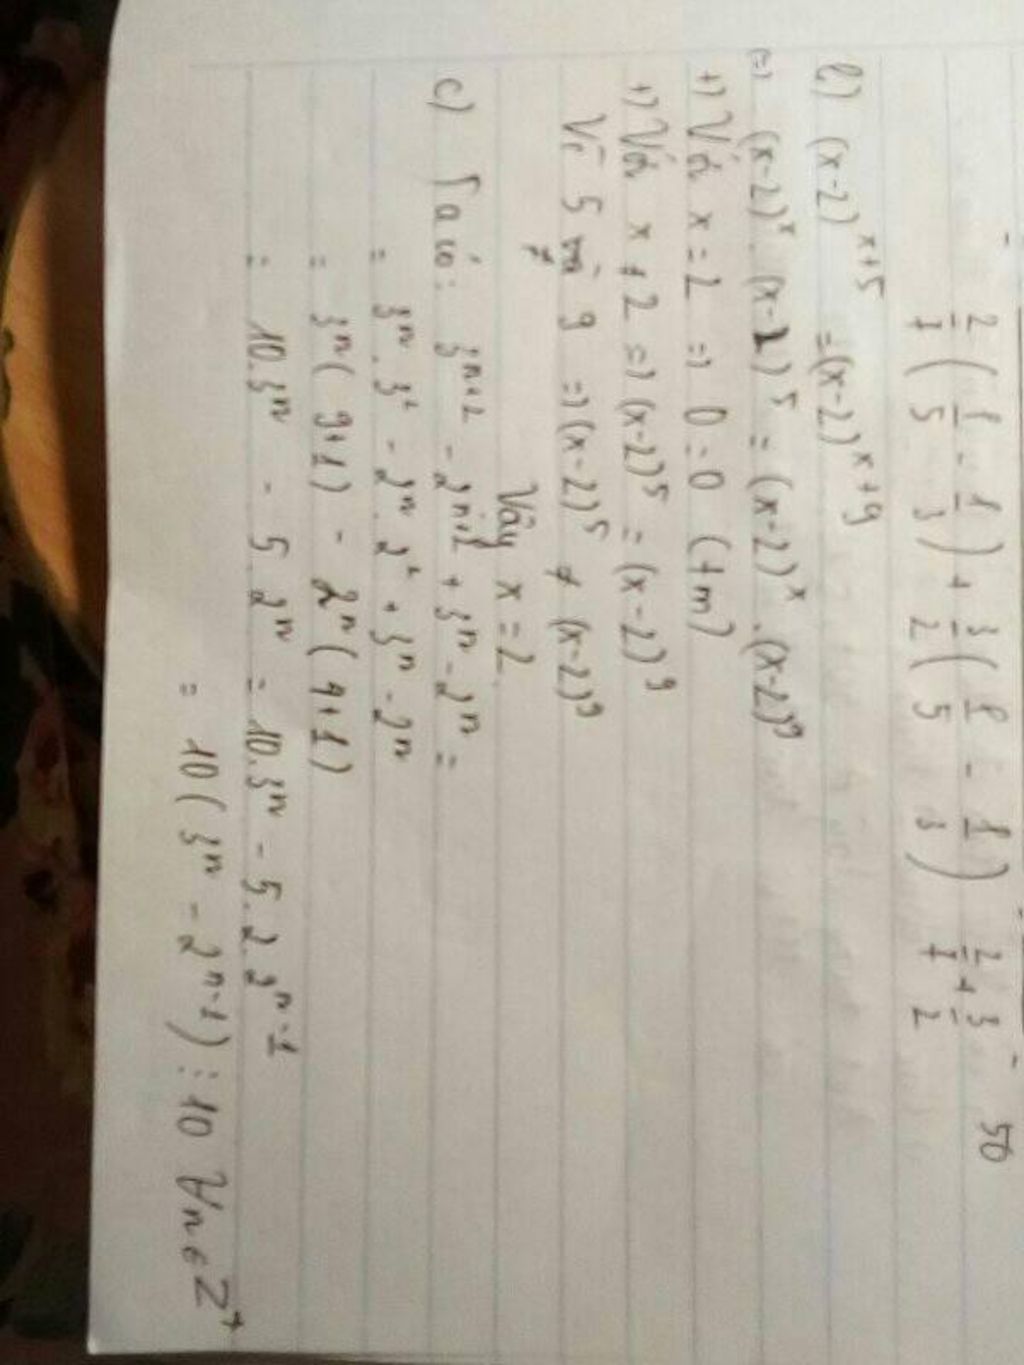 2/7 ( 1/5 - 1/3 ) + 3/2 ( 1/5 - 1/3 ) 2/7 + 3/2 50
b) (x-2)^{x+5} = (x-2)^{x+9}
=> (x-2)^x . (x-2)^5 = (x-2)^x . (x-2)^9
+) Với x = 2 => 0 = 0 (tm)
+) Với x ≠ 2 => (x-2)^5 = (x-2)^9
Vì 5 ≠ 9 => (x-2)^5 ≠ (x-2)^9
Vậy x = 2
c) Ta có: 3^{n+2} - 2^{n+2} + 3^n - 2^n =
= 3^n . 3^2 - 2^n . 2^2 + 3^n - 2^n
= 3^n ( 9+1 ) - 2^n ( 4+1 )
= 10.3^n - 5.2^n = 10.3^n - 5.2.2^{n-1}
= 10 ( 3^n - 2^{n-1} ) ⋮ 10 ∀n ∈ Z^+